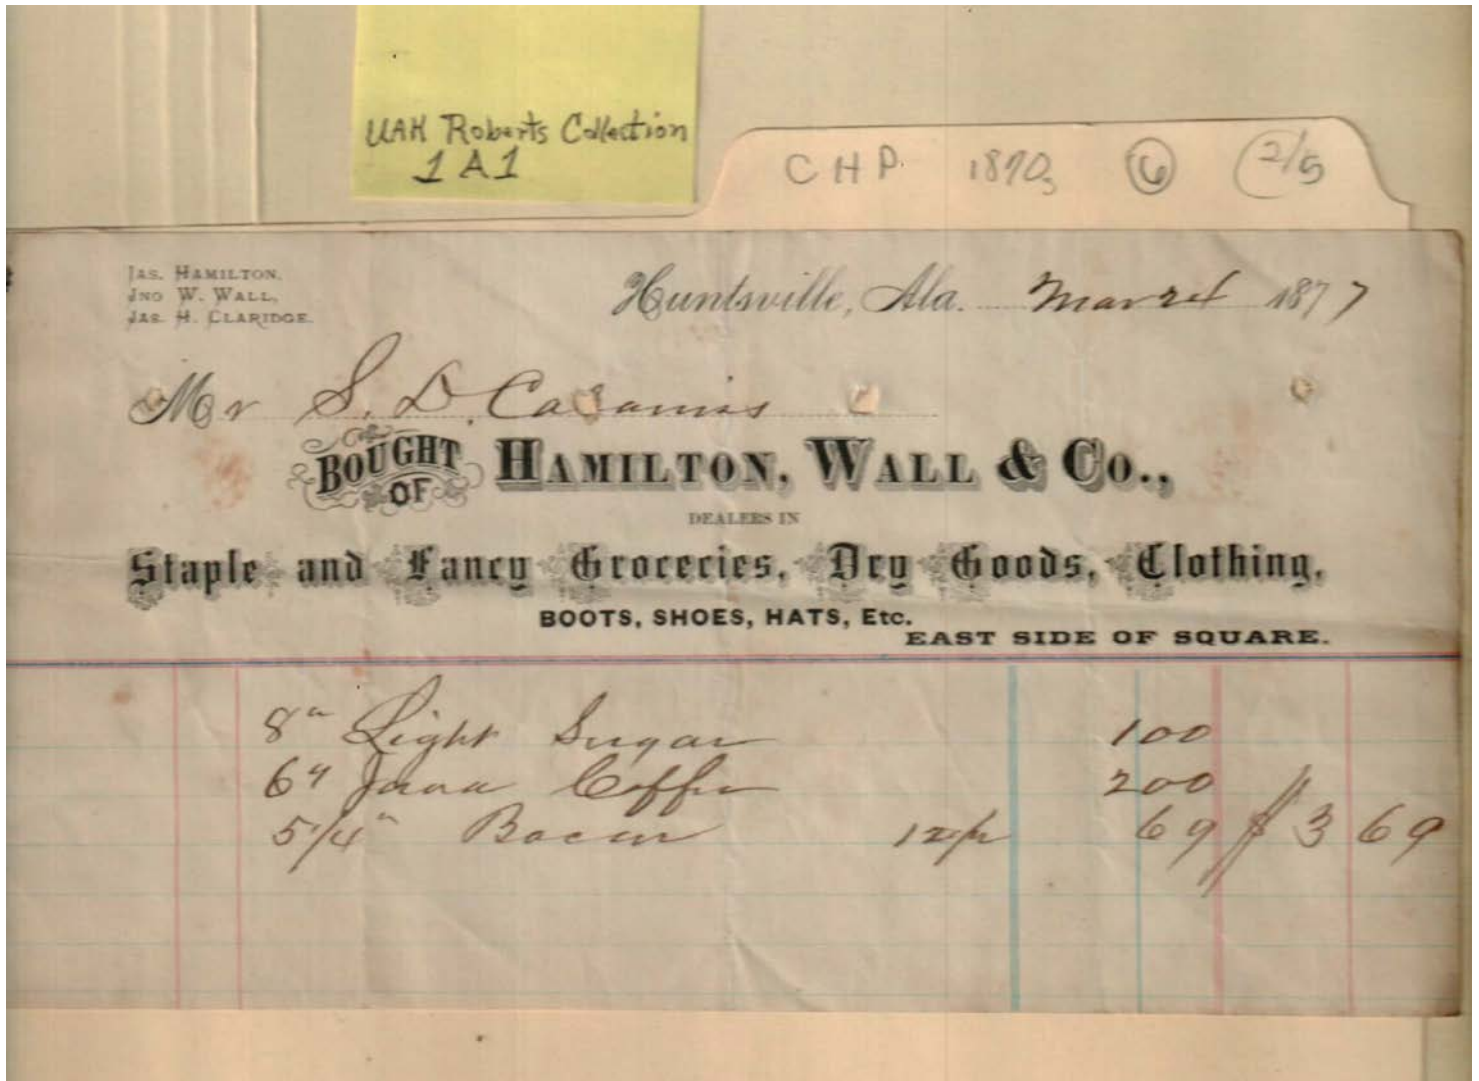 UAH Roberts Collection
1A1
CHP. 1870s 6 2/5
JAS. HAMILTON,
JNO W. WALL,
JAS. H. CLARIDGE.
Huntsville, Ala. 1877
Mr S. D. Cabaniss
BOUGHT OF HAMILTON, WALL & CO.,
DEALERS IN
Staple and Fancy Groceries, Dry Goods, Clothing,
BOOTS, SHOES, HATS, Etc.
EAST SIDE OF SQUARE.
8" Light Sugar 100
6" Java Coffee 200
5/4" Bacon 69 $3 69